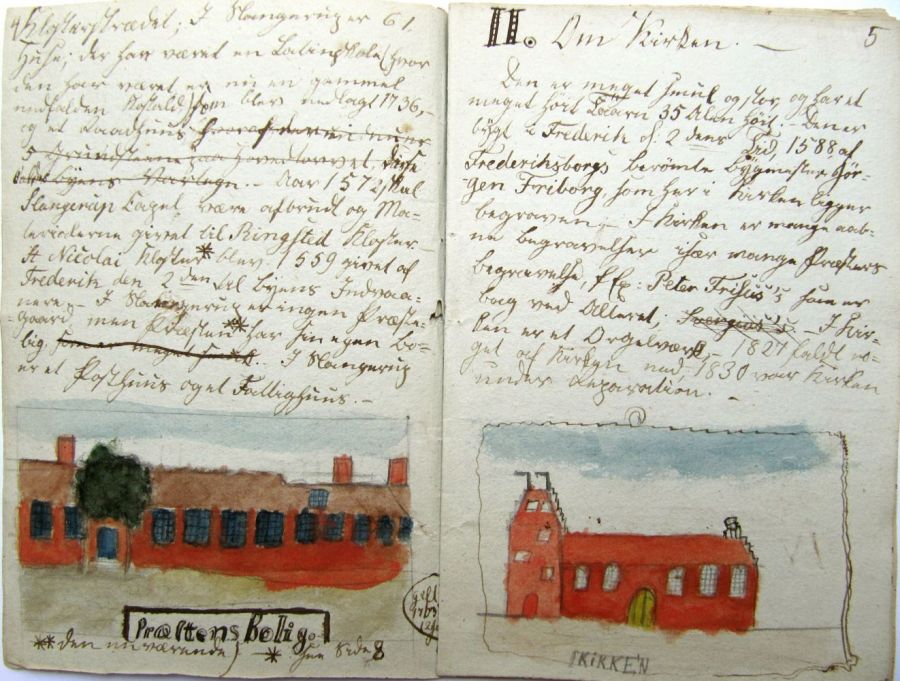 4
Klosterstrædet; I Slangerup er 61.
Huse; der har været en Latinskole (hvor
den har været er nu en gammel
nedfalden Kostald) som blev nedlagt 1736,
og et Raadhuus
5 Grundstene paa Hovedtorvet,
Byens Vartegn. Aar 1572, skal
Slangerup Capel, være afbrudt og Ma-
terialerne givet til Ringsted Kloster
St Nicolai Kloster * blev 1559 givet af
Frederik den 2den til Byens Indvaa-
nere. I Slangerup er ingen Præste-
gaard men Præsten ** har sin egen Bo-
lig. som er meget smuk. I Slangerup
er et Posthuus og et Fattighuus.
Præstens Bolig.
** den nuværende) * See Side 8
5
II. Om Kirken.
Den er meget smuk og stor og har et
meget høit Taarn 35 Alen høit. Den er
bygt i Frederik d: 2dens Tid, 1588, af
Frederiksborgs berømte Bygmester Jör-
gen Friborg, som her i Kirken ligger
begraven. I Kirken er mange aab-
ne begravelser især mange Præsters
begravelse, f Ex: Peter Friisius's som er
bag ved Alteret, I Kir-
ken er et Orgelværk, 1827 faldt no-
get af Kirken ned, 1830 var Kirken
under Reparation.
KIRKE'N